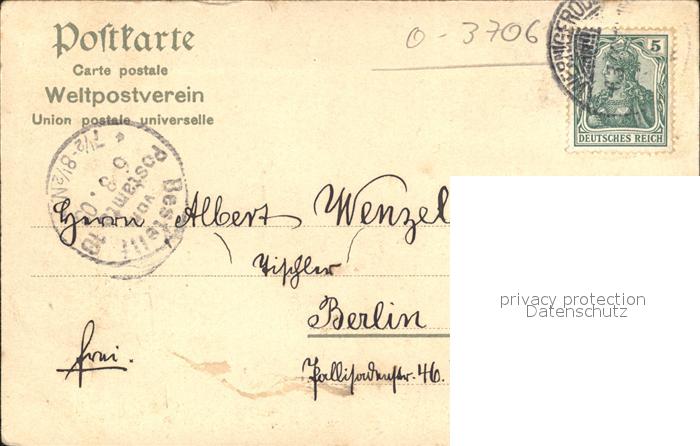 Postkarte
Carte postale
Weltpostverein
Union postale universelle
0-3706
WERNIGERODE
5
DEUTSCHES REICH
Bestellt
vom
Postamte 10
6.8.0
7½-8½N.
Herrn Albert Wenzel
(Tischler)
Berlin
frei.
Pallisadenstr. 46.
privacy protection
Datenschutz